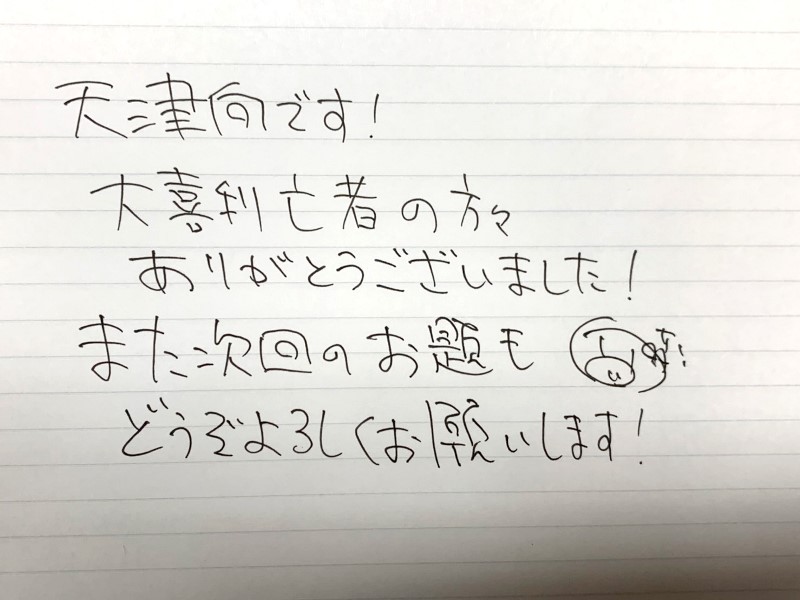 天津向です!
大喜利亡者の方々
ありがとうございました!
また次回のお題も
どうぞよろしくお願いします!